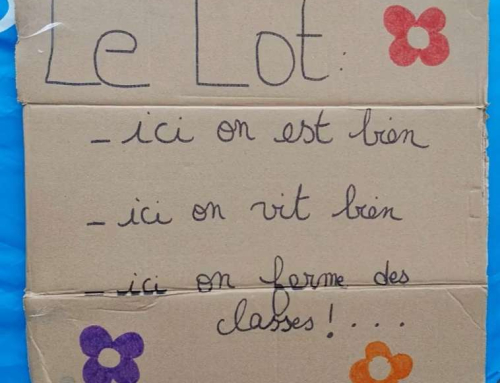 Le Lot:
- ici on est bien
- ici on vit bien
- ici on ferme des
classes! ...